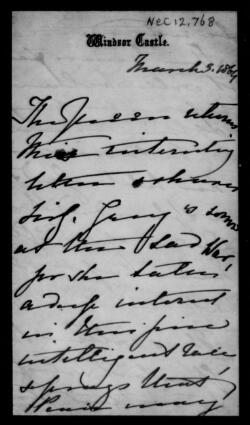 NeC 12,768
Windsor Castle.
March 3. 186
The Queen returns
this interesting
letter &
Sir G. Grey's
at this sad War,
for she takes
a deep interest
in this fine
intelligent race
& trusts
Peace may